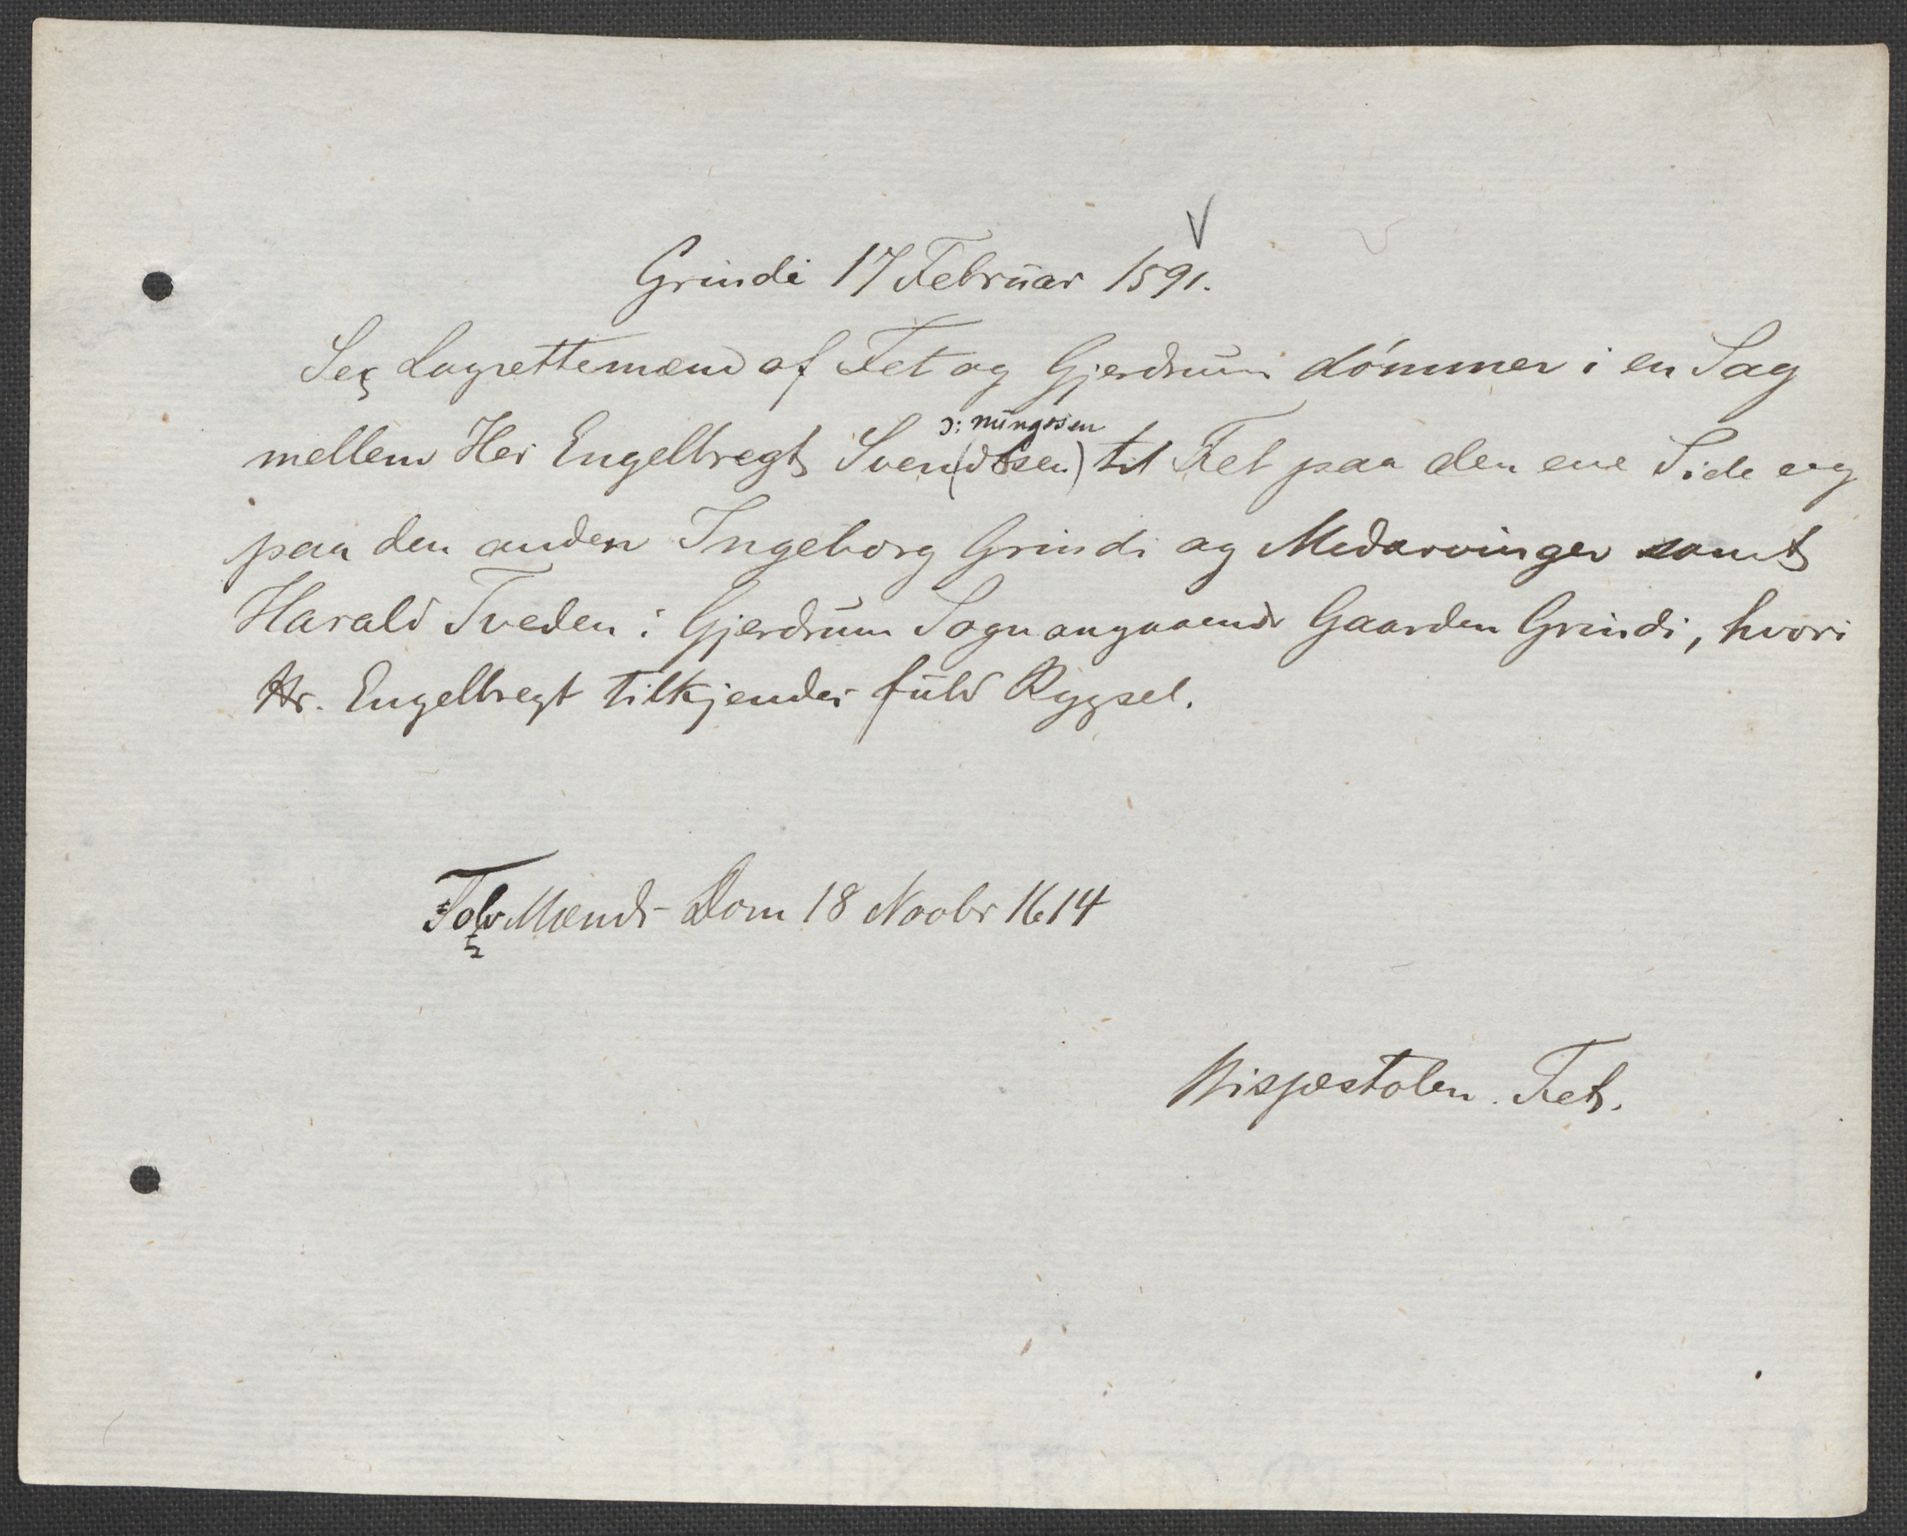 Grindi 17 Februar 1591.
Sex Lagrettemænd af Fet og Gjerdrum dømmer i en Sag
ɔ: ningssen
mellem Her Engelbregt Sven(dssen) til Fet paa den ene Side og
paa den anden Ingeborg Grindi og Medarvinger samt
Harald Tveden i Gjerdrum Sogn angaaende Gaarden Grindi, hvori
Hr. Engelbregt tilkjendes fuld Bygsel.
Tolv Mænds Dom 18 Novbr 1614
Bispestolen. Fet.